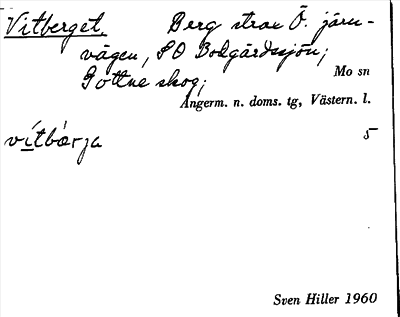 Vitberget. Berg strax Ö. järn-
vägen, SO Bodgårdssjön;
Gottne skog;
Mo sn
Ångerm. n. doms. tg, Västern. l.
vítbærja 5
Sven Hiller 1960